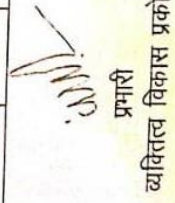 प्रभारी
व्यक्तित्व विकास प्रको